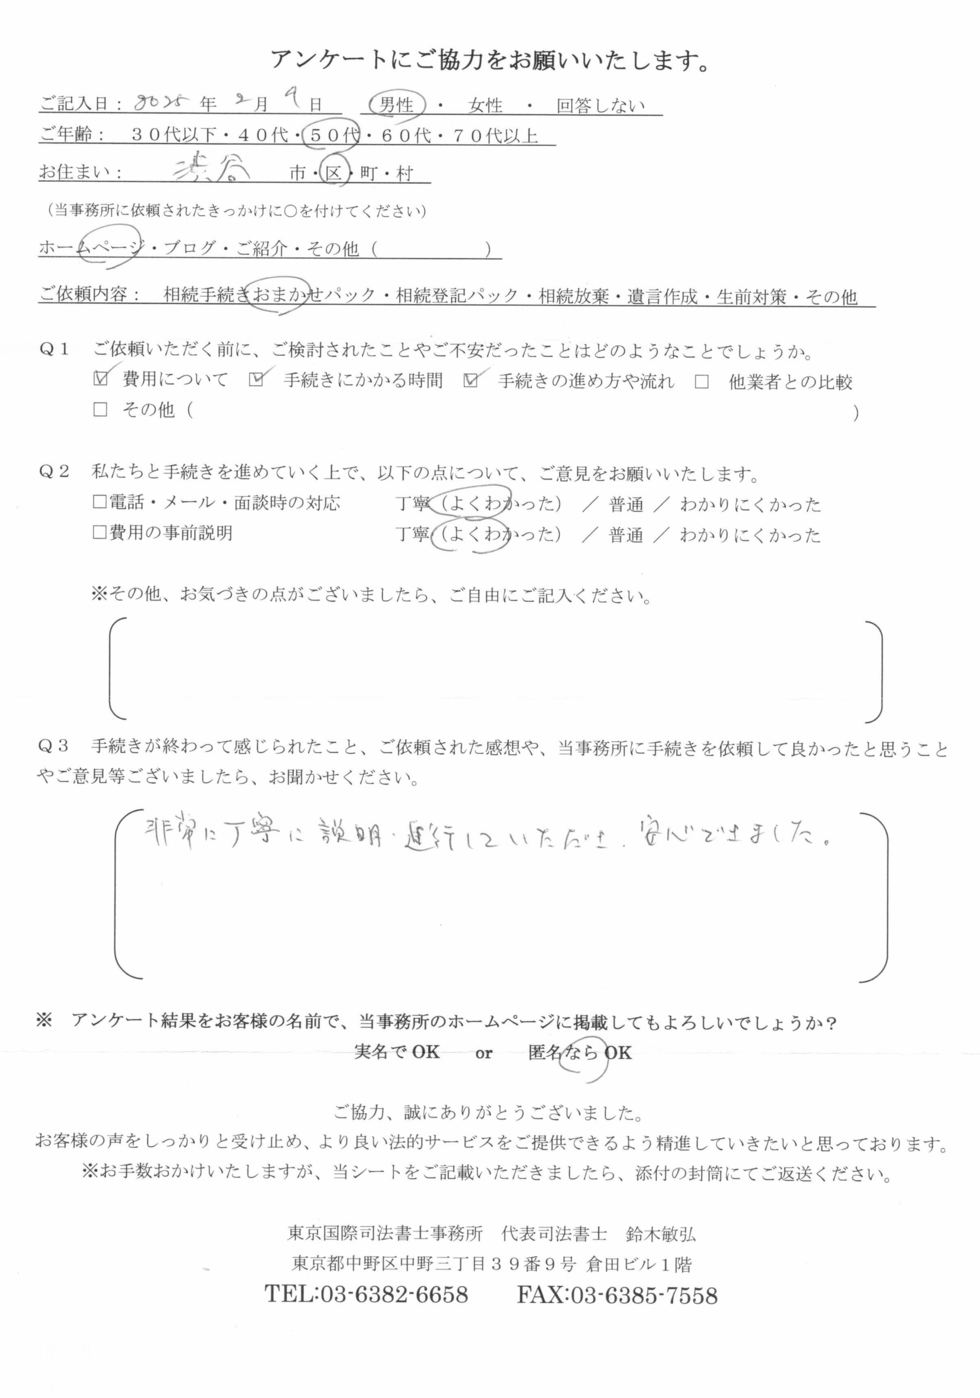 アンケートにご協力をお願いいたします。
ご記入日：2025年2月9日　男性・女性・回答しない
ご年齢：　３０代以下・４０代・５０代・６０代・７０代以上
お住まい：　渋谷　市・区・町・村
（当事務所に依頼されたきっかけに○を付けてください）
ホームページ・ブログ・ご紹介・その他（　　　　　　）
ご依頼内容：　相続手続きおまかせパック・相続登記パック・相続放棄・遺言作成・生前対策・その他
Ｑ１　ご依頼いただく前に、ご検討されたことやご不安だったことはどのようなことでしょうか。
☑ 費用について　☑ 手続きにかかる時間　☑ 手続きの進め方や流れ　□ 他業者との比較
□ その他（　　　　　　　　　　　　）
Ｑ２　私たちと手続きを進めていく上で、以下の点について、ご意見をお願いいたします。
□電話・メール・面談時の対応　　　丁寧（よくわかった）　／ 普通 ／ わかりにくかった
□費用の事前説明　　　丁寧（よくわかった）　／ 普通 ／ わかりにくかった
※その他、お気づきの点がございましたら、ご自由にご記入ください。
Ｑ３　手続きが終わって感じられたこと、ご依頼された感想や、当事務所に手続きを依頼して良かったと思うこと
やご意見等ございましたら、お聞かせください。
非常に丁寧に説明・進行していただき、安心できました。
※　アンケート結果をお客様の名前で、当事務所のホームページに掲載してもよろしいでしょうか？
実名でOK　　or　　匿名ならOK
ご協力、誠にありがとうございました。
お客様の声をしっかりと受け止め、より良い法的サービスをご提供できるよう精進していきたいと思っております。
※お手数おかけいたしますが、当シートをご記載いただきましたら、添付の封筒にてご返送ください。
東京国際司法書士事務所　代表司法書士　鈴木敏弘
東京都中野区中野三丁目３９番９号 倉田ビル１階
TEL:03-6382-6658　　FAX:03-6385-7558